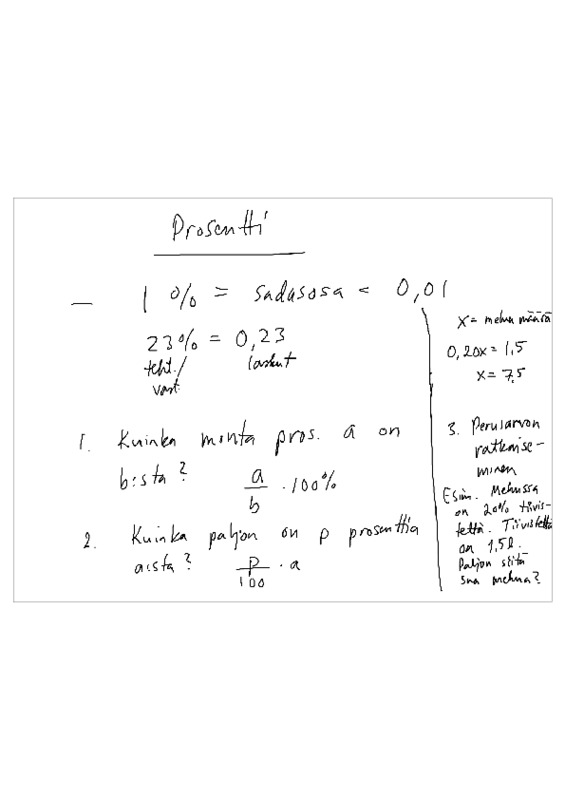 Prosentti
1 % = sadasosa = 0,01
23% = 0,23
teht./ laskut
vast.
1. Kuinka monta pros. a on
b:stä?
a/b · 100%
2. Kuinka paljon on p prosenttia
a:sta?
p/100 · a
x = mehun määrä
0,20x = 1,5
x = 7,5
3. Perusarvon
ratkaise-
minen
Esim. Mehussa
on 20% tiivis-
tettä. Tiivistettä
on 1,5 l.
Paljon siitä
saa mehua?